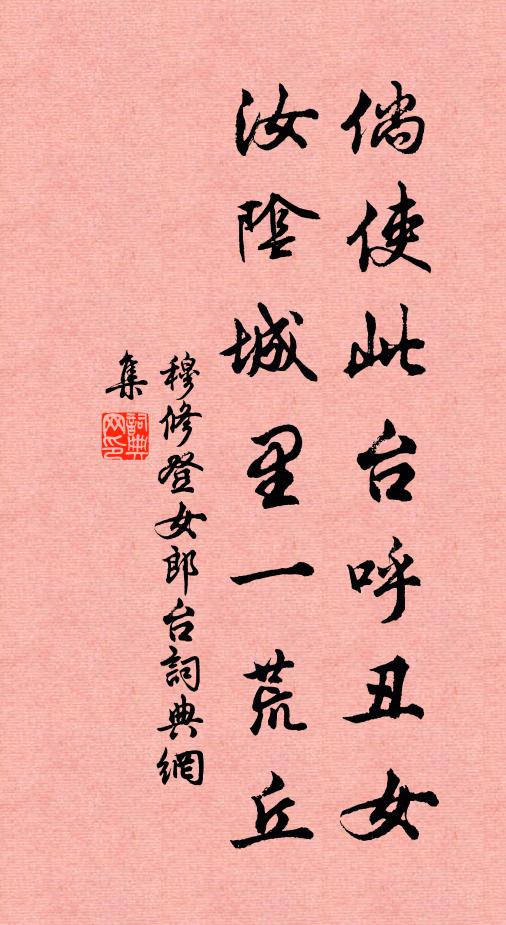 倘使此台呼丑女
汝陰城里一荒丘
穆修登女郎台詞典網
集
詞典
网印